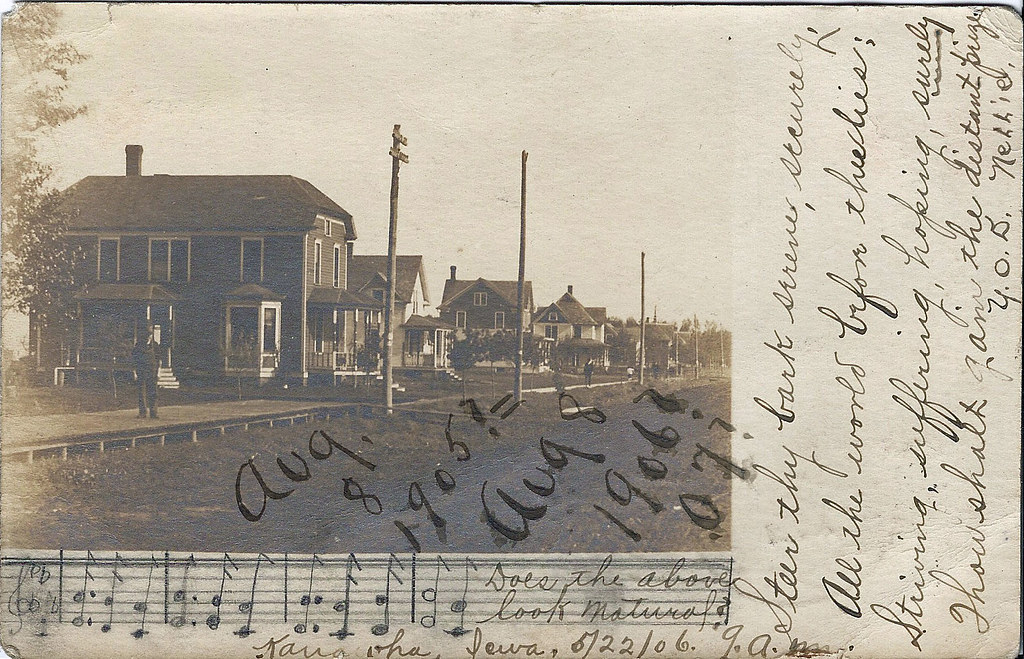 Aug. 8 1905?=
Aug 8 1906?
07?
Does the above
look natural?
Iowa, 5/22/06. 9 a.m.
Steer thy bark serene, securely,
All the world before thee lies;
Striving, suffering, hoping, surely
Thou shalt gain the distant prize
Y. O. D. Nellie.